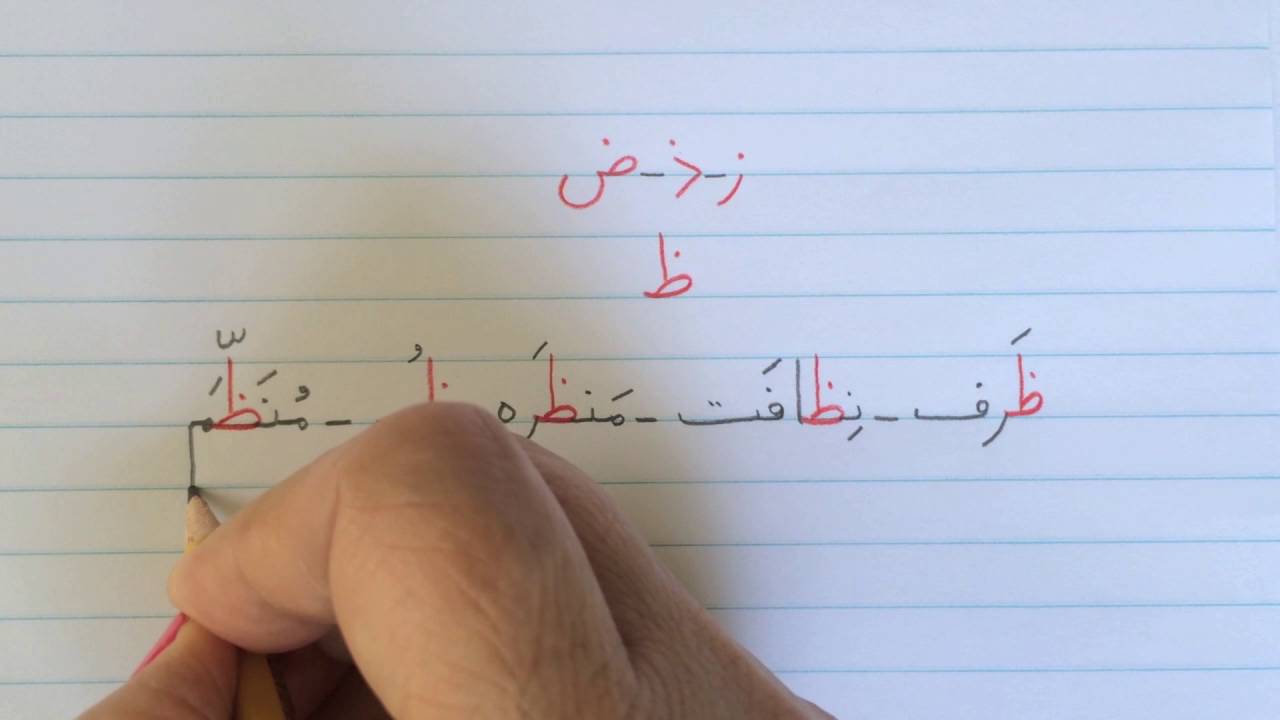 ز-ذ-ض
ظ
ظَرف - نِظافَت - مَنظَره - مُنَظَّم